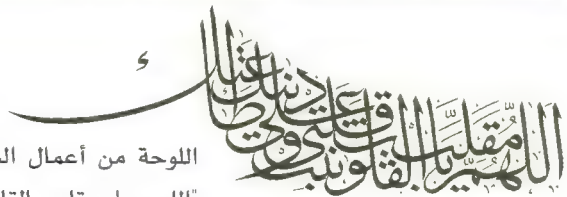 اللهم يا مقلب القلوب ثبت قلبي على دينك وعلى طاعتك
اللوحة من أعمال
"اللهم يا مقلب